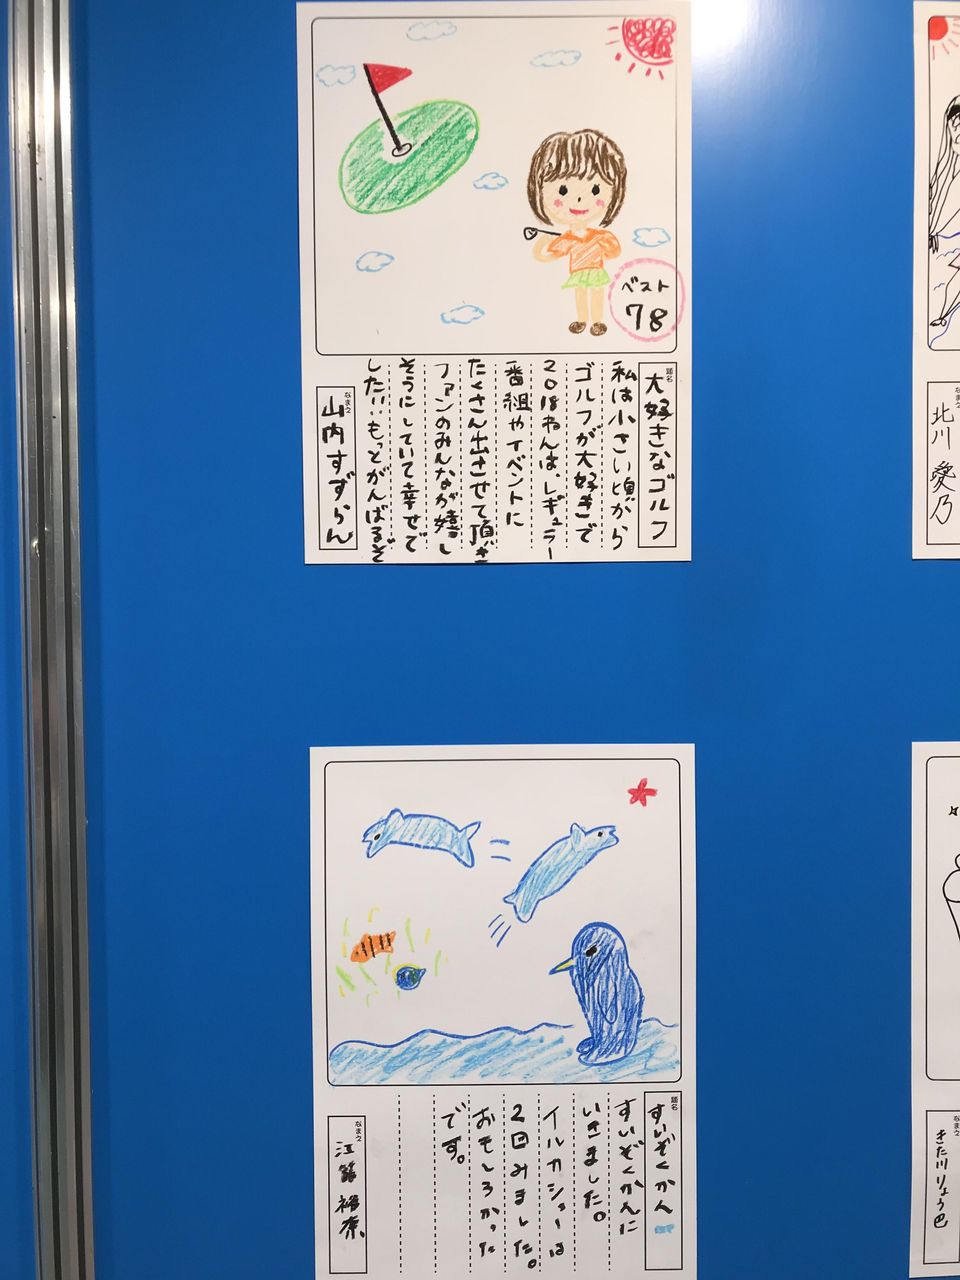 ベスト
78
題名
大好きなゴルフ
私は小さい頃から
ゴルフが大好きで
2018ねんは、レギュラー
番組やイベントに
たくさん出させて頂き
ファンのみんなが嬉し
そうにしていて幸せで
したい。もっとがんばるぞ
なまえ
山内すずらん
なまえ
北川 愛乃
題名
すいぞくかん
すいぞくかんに
いきました。
イルカショーは
2回みました。
おもしろかった
です。
なまえ
江籠裕奈
なまえ
きた川りょう巴